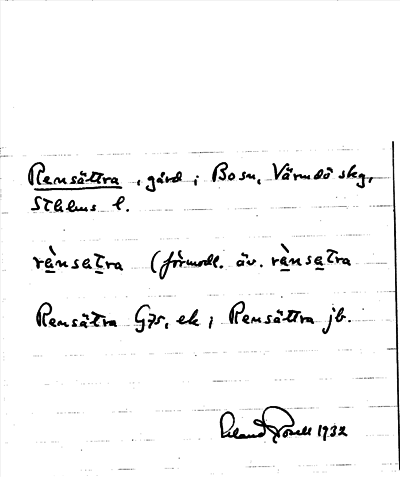 Rensättra, gård i Boo sn, Värmdö skg,
Sthlms l.
rànsatra (förmodl. äv. rànsatra
Rensätra G7s, ek; Rensättra jb.
Erland Rosell 1932